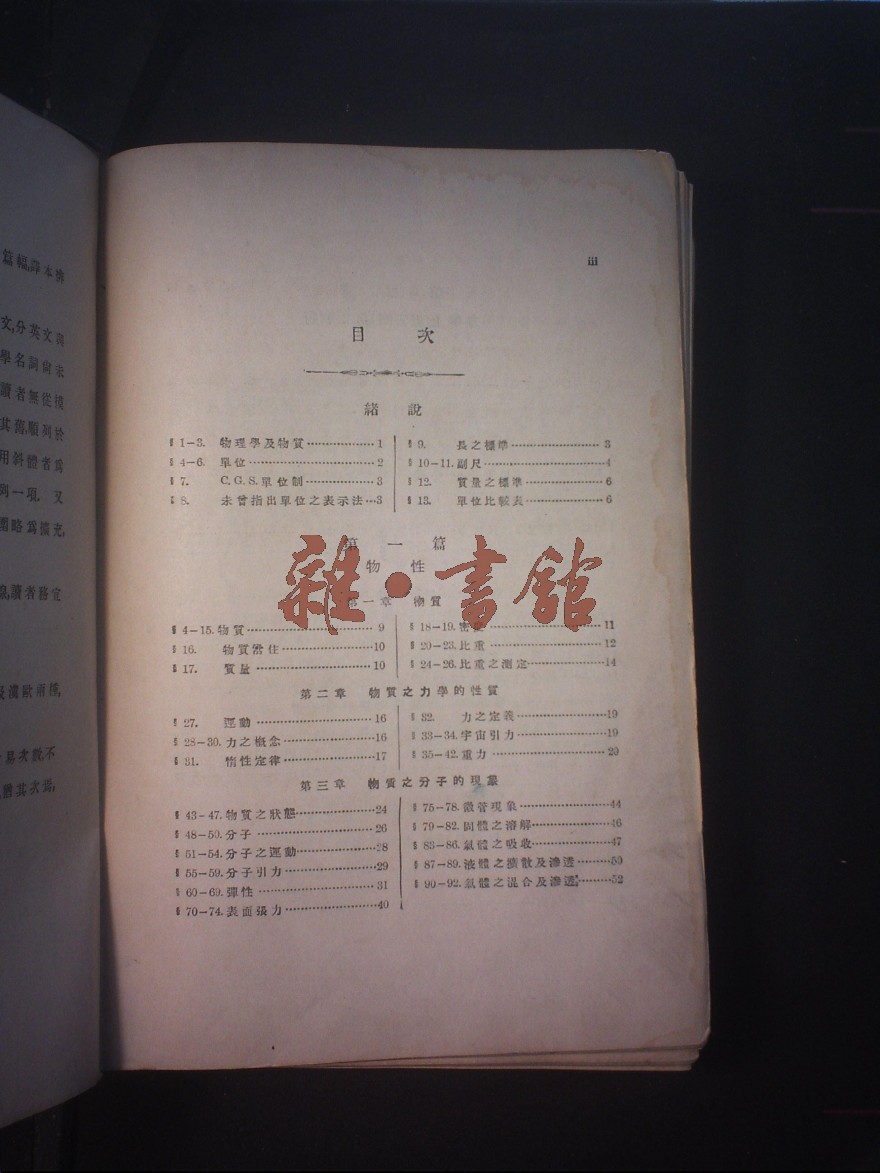 篇幅,譯本將
文,分英文與
學名詞尚未
讀者無從摸
其舊,順列於
用斜體者爲
列一項. 又
圍略爲擴充,
讀者務宜
iii
目 次
緒 說
§ 1-3. 物理學及物質………………1
§ 4-6. 單位……………………………2
§ 7. C.G.S.單位制…………………3
§ 8. 未曾指出單位之表示法…3
§ 9. 長之標準……………………3
§ 10-11. 副尺…………………………4
§ 12. 質量之標準…………………6
§ 13. 單位比較表…………………6
第 一 篇
物 性
雜·書館
第一章 物質
§ 4-15. 物質……………………………9
§ 16. 物質常住……………………10
§ 17. 質量…………………………10
§ 18-19. 密度…………………………11
§ 20-23. 比重…………………………12
§ 24-26. 比重之測定…………………14
第二章 物質之力學的性質
§ 27. 運動…………………………16
§ 28-30. 力之概念……………………16
§ 31. 惰性定律……………………17
§ 32. 力之定義……………………19
§ 33-34. 宇宙引力……………………19
§ 35-42. 重力…………………………20
第三章 物質之分子的現象
§ 43-47. 物質之狀態…………………24
§ 48-50. 分子…………………………26
§ 51-54. 分子之運動…………………28
§ 55-59. 分子引力……………………29
§ 60-69. 彈性…………………………31
§ 70-74. 表面張力……………………40
§ 75-78. 微管現象……………………44
§ 79-82. 固體之溶解…………………46
§ 83-86. 氣體之吸收…………………47
§ 87-89. 液體之擴散及滲透………50
§ 90-92. 氣體之混合及滲透………52